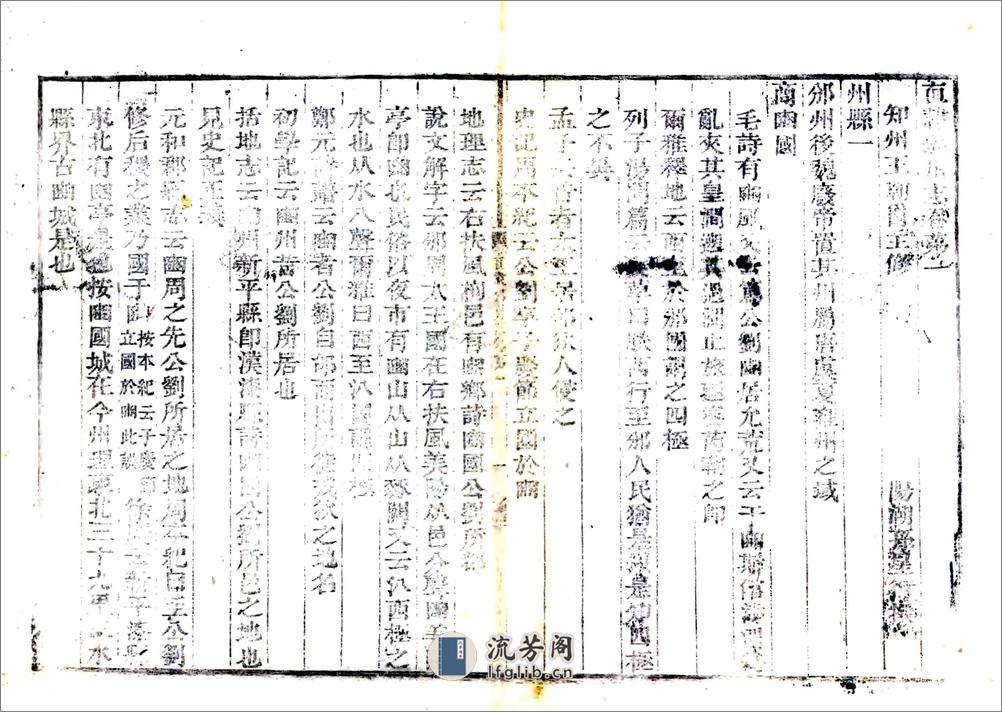 直隸州志卷第一
知州王朝爵主修 陽湖孫星衍撰
州縣一
邠州後魏廢帝置其州屬唐虞夏雍州之域
商豳國
毛詩有豳 公劉豳居允荒又云于豳斯館涉渭
亂夾其皇澗遡其過澗止旅迺密芮鞫之即
爾雅釋地云西至於邠國謂之四極
列子湯問篇云 革曰朕西行至邠人民猶是 是 四極
之不異
孟子 昔者大王居邠狄人侵之
史記周本紀云公劉卒子慶節立國於豳
地理志云右扶風栒邑有豳鄉詩豳國公劉所都
說文解字云邠周大王國在右扶風美陽从邑分聲豳美
亭即豳也民俗以夜市有豳山从山从豩闕又云汃西極之
水也从水八聲爾雅曰西至汃國謂四極
鄭元詩譜云豳者公劉自邰而出所徙戎狄之地名
初學記云豳州昔公劉所居也
括地志云豳州新平縣即漢漆縣詩豳國公劉所邑之地也
見史記正義
元和郡縣志云豳周之先公劉所居之地周本紀曰至公劉
修后稷之業乃國于豳 按本紀云子慶節立國於豳此誤 徐廣云新平漆縣
東北有豳亭是也按豳國城在今州理東北二十九里三水
縣界古豳城是也
流芳阁
lfglib.cn